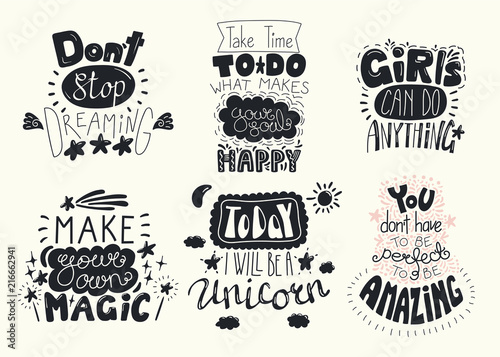 Don't
Stop
DREAMING
Take Time
TO DO
WHAT MAKES
your soul
HAPPY
GIRLS
CAN DO
ANYTHING
MAKE
your own
MAGIC
TODAY
I WILL BE A
unicorn
YOU
don't have
TO BE
perfect
TO BE
AMAZING
Adobe Stock | #216662941